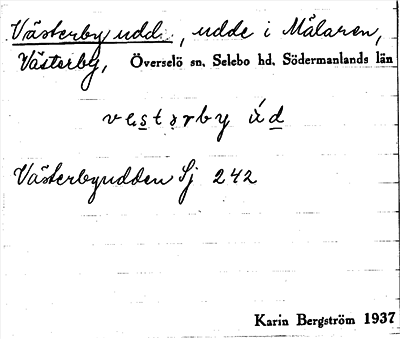 Västerby udd, udde i Mälaren,
Västerby, Överselö sn, Selebo hd, Södermanlands län
västərby úd
Västerbyudden Sj 242
Karin Bergström 1937